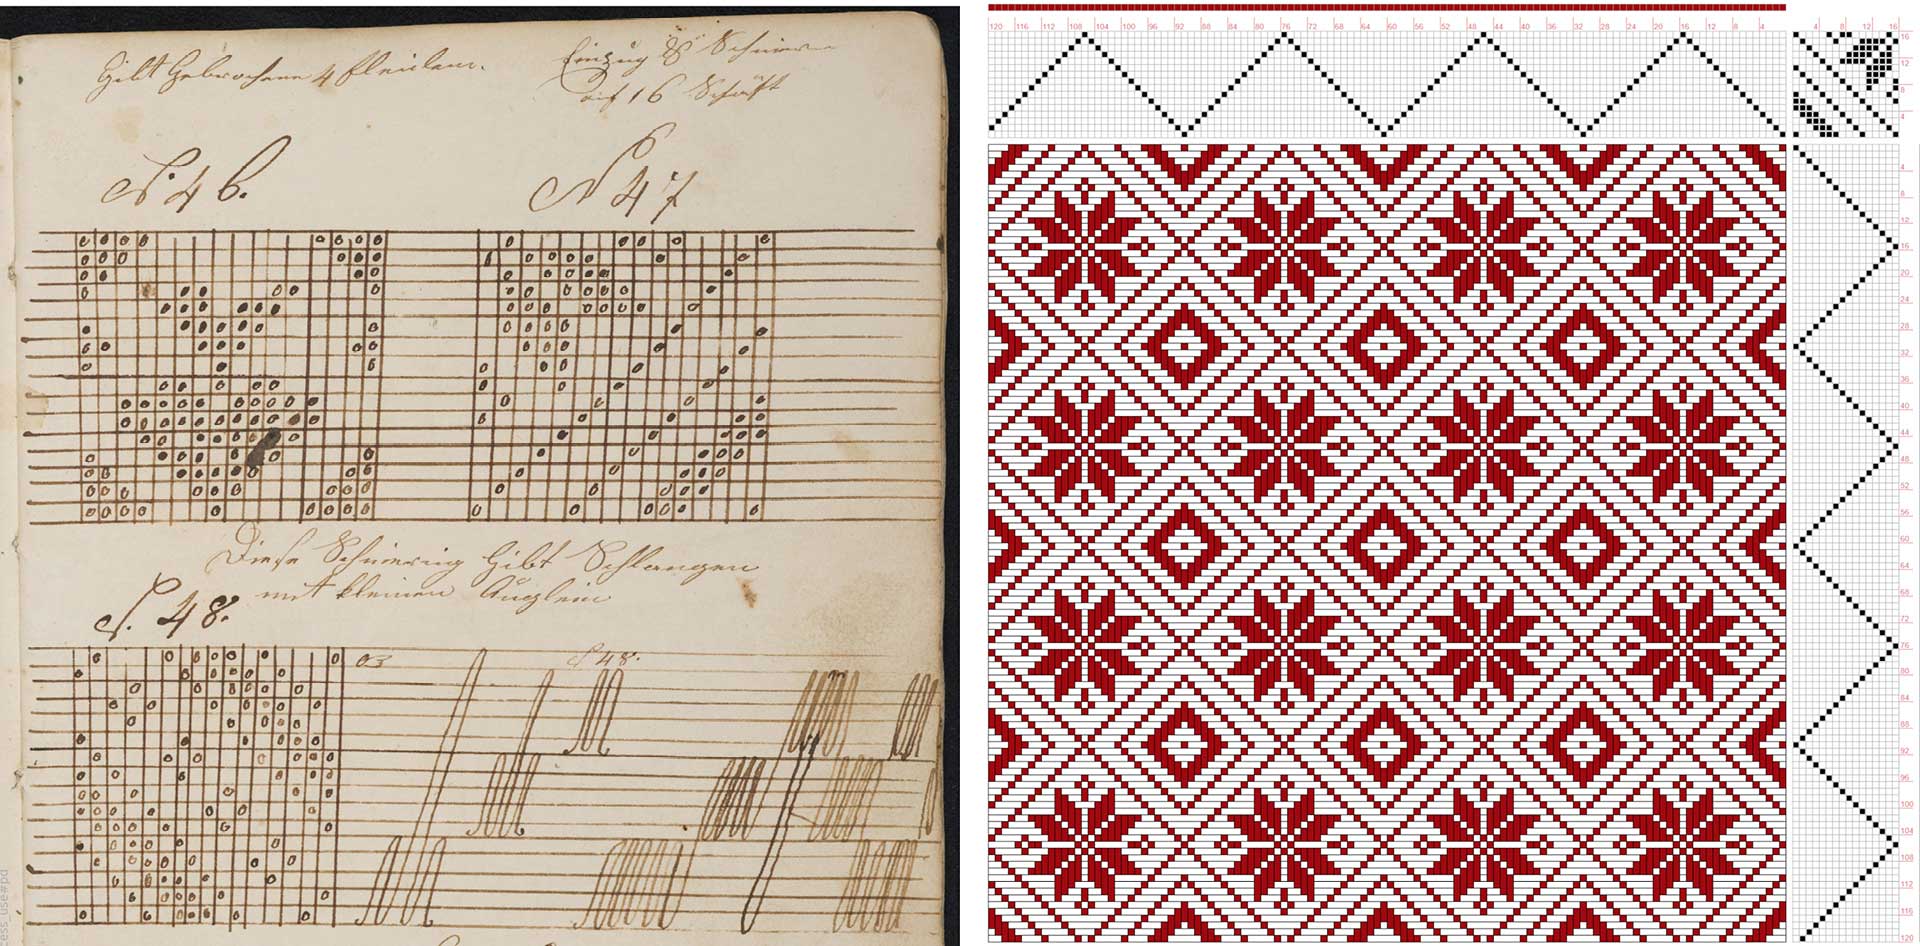 Gibt Gebrochene 4
Einzug & Schnier
auf 16 Schäft
N. 46.
N 47
Diese Schnierung Gibt Schlangen
mit kleinen Äuglein
N. 48.
03
N 48.
120 116 112 108 104 100 96 92 88 84 80 76 72 68 64 60 56 52 48 44 40 36 32 28 24 20 16 12 8 4
4 8 12 16
16
12
8
4
4
8
12
16
20
24
28
32
36
40
44
48
52
56
60
64
68
72
76
80
84
88
92
96
100
104
108
112
116
120